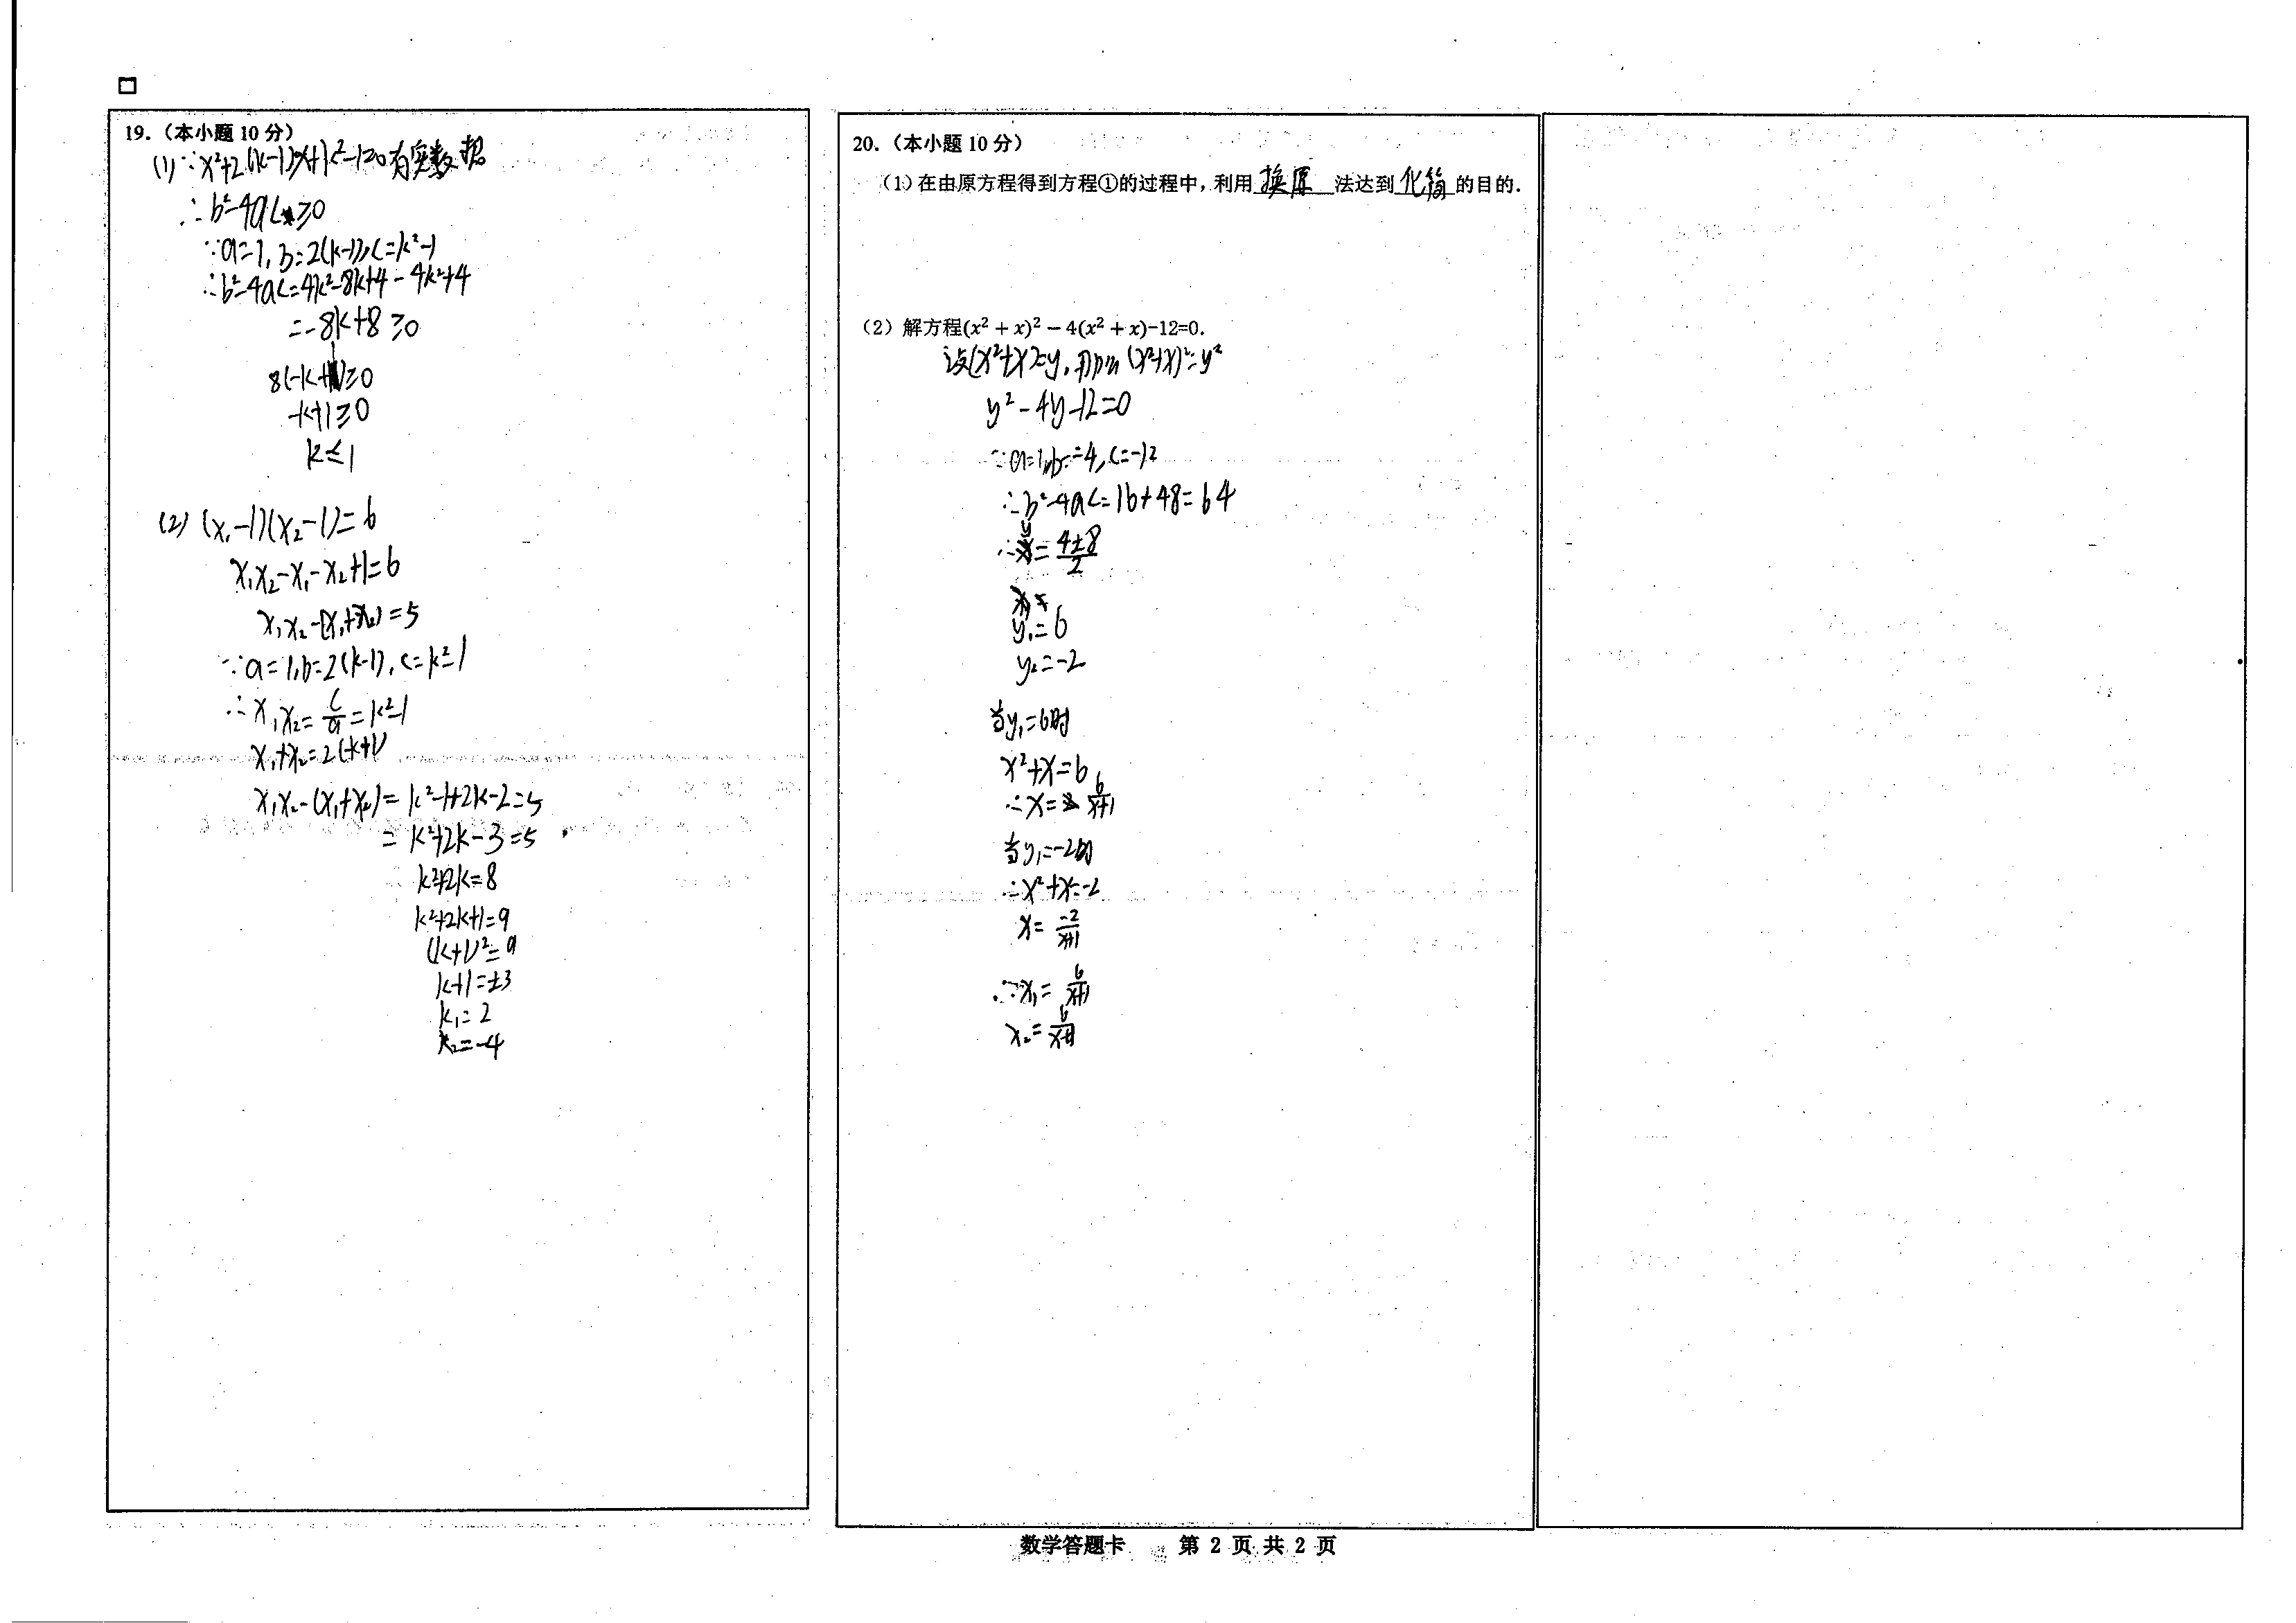 19.（本小题 10 分）
(1) ∵x²+2(k-1)x+k²-1=0有实数根
∴b²-4ac≥0
∵a=1, b=2(k-1), c=k²-1
∴b²-4ac=4k²-8k+4-4k²+4
=-8k+8≥0
8(-k+1)≥0
-k+1≥0
k≤1
(2) (x₁-1)(x₂-1)=6
x₁x₂-x₁-x₂+1=6
x₁x₂-(x₁+x₂)=5
∵a=1, b=2(k-1), c=k²-1
∴x₁x₂=c/a=k²-1
x₁+x₂=2(-k+1)
x₁x₂-(x₁+x₂)=k²-1+2k-2=5
=k²+2k-3=5
k²+2k=8
k²+2k+1=9
(k+1)²=9
k+1=±3
k₁=2
k₂=-4
20.（本小题 10 分）
（1）在由原方程得到方程①的过程中，利用 换原 法达到 化简 的目的.
（2）解方程(x² + x)² − 4(x² + x)-12=0.
设(x²+x)=y, (x²+x)²=y²
y²-4y-12=0
∵a=1, b=-4, c=-12
∴b²-4ac=16+48=64
∴y=(4±8)/2
y₁=6
y₂=-2
当y₁=6时
x²+x=6
∴x=6/(x+1)
当y₁=-2时
∴x²+x=-2
x=-2/(x+1)
∴x₁=6/(x+1)
数学答题卡 第 2 页 共 2 页